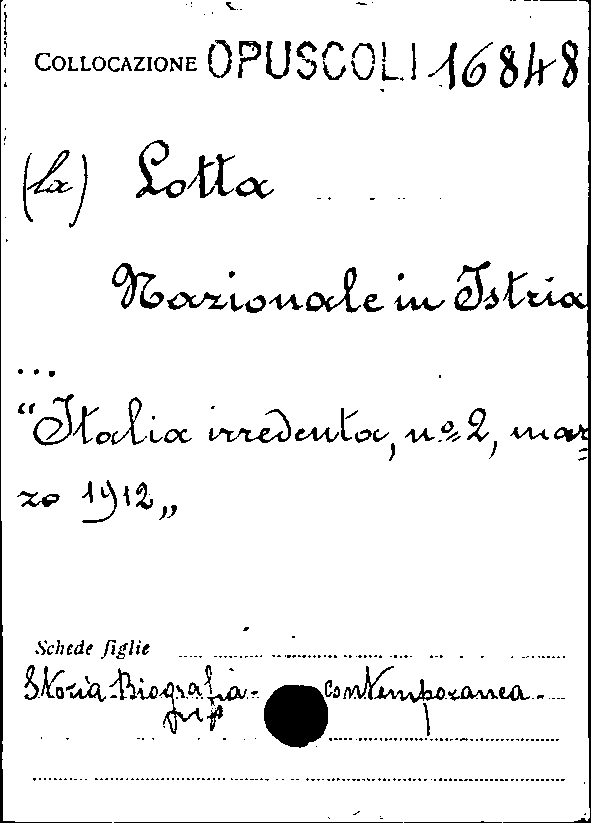 COLLOCAZIONE OPUSCOLI 16848
(La) Lotta
Nazionale in Istria
...
“Italia irredenta, nº 2, mar=
zo 1912„
Schede figlie
Storia-Biografia- contemporanea-